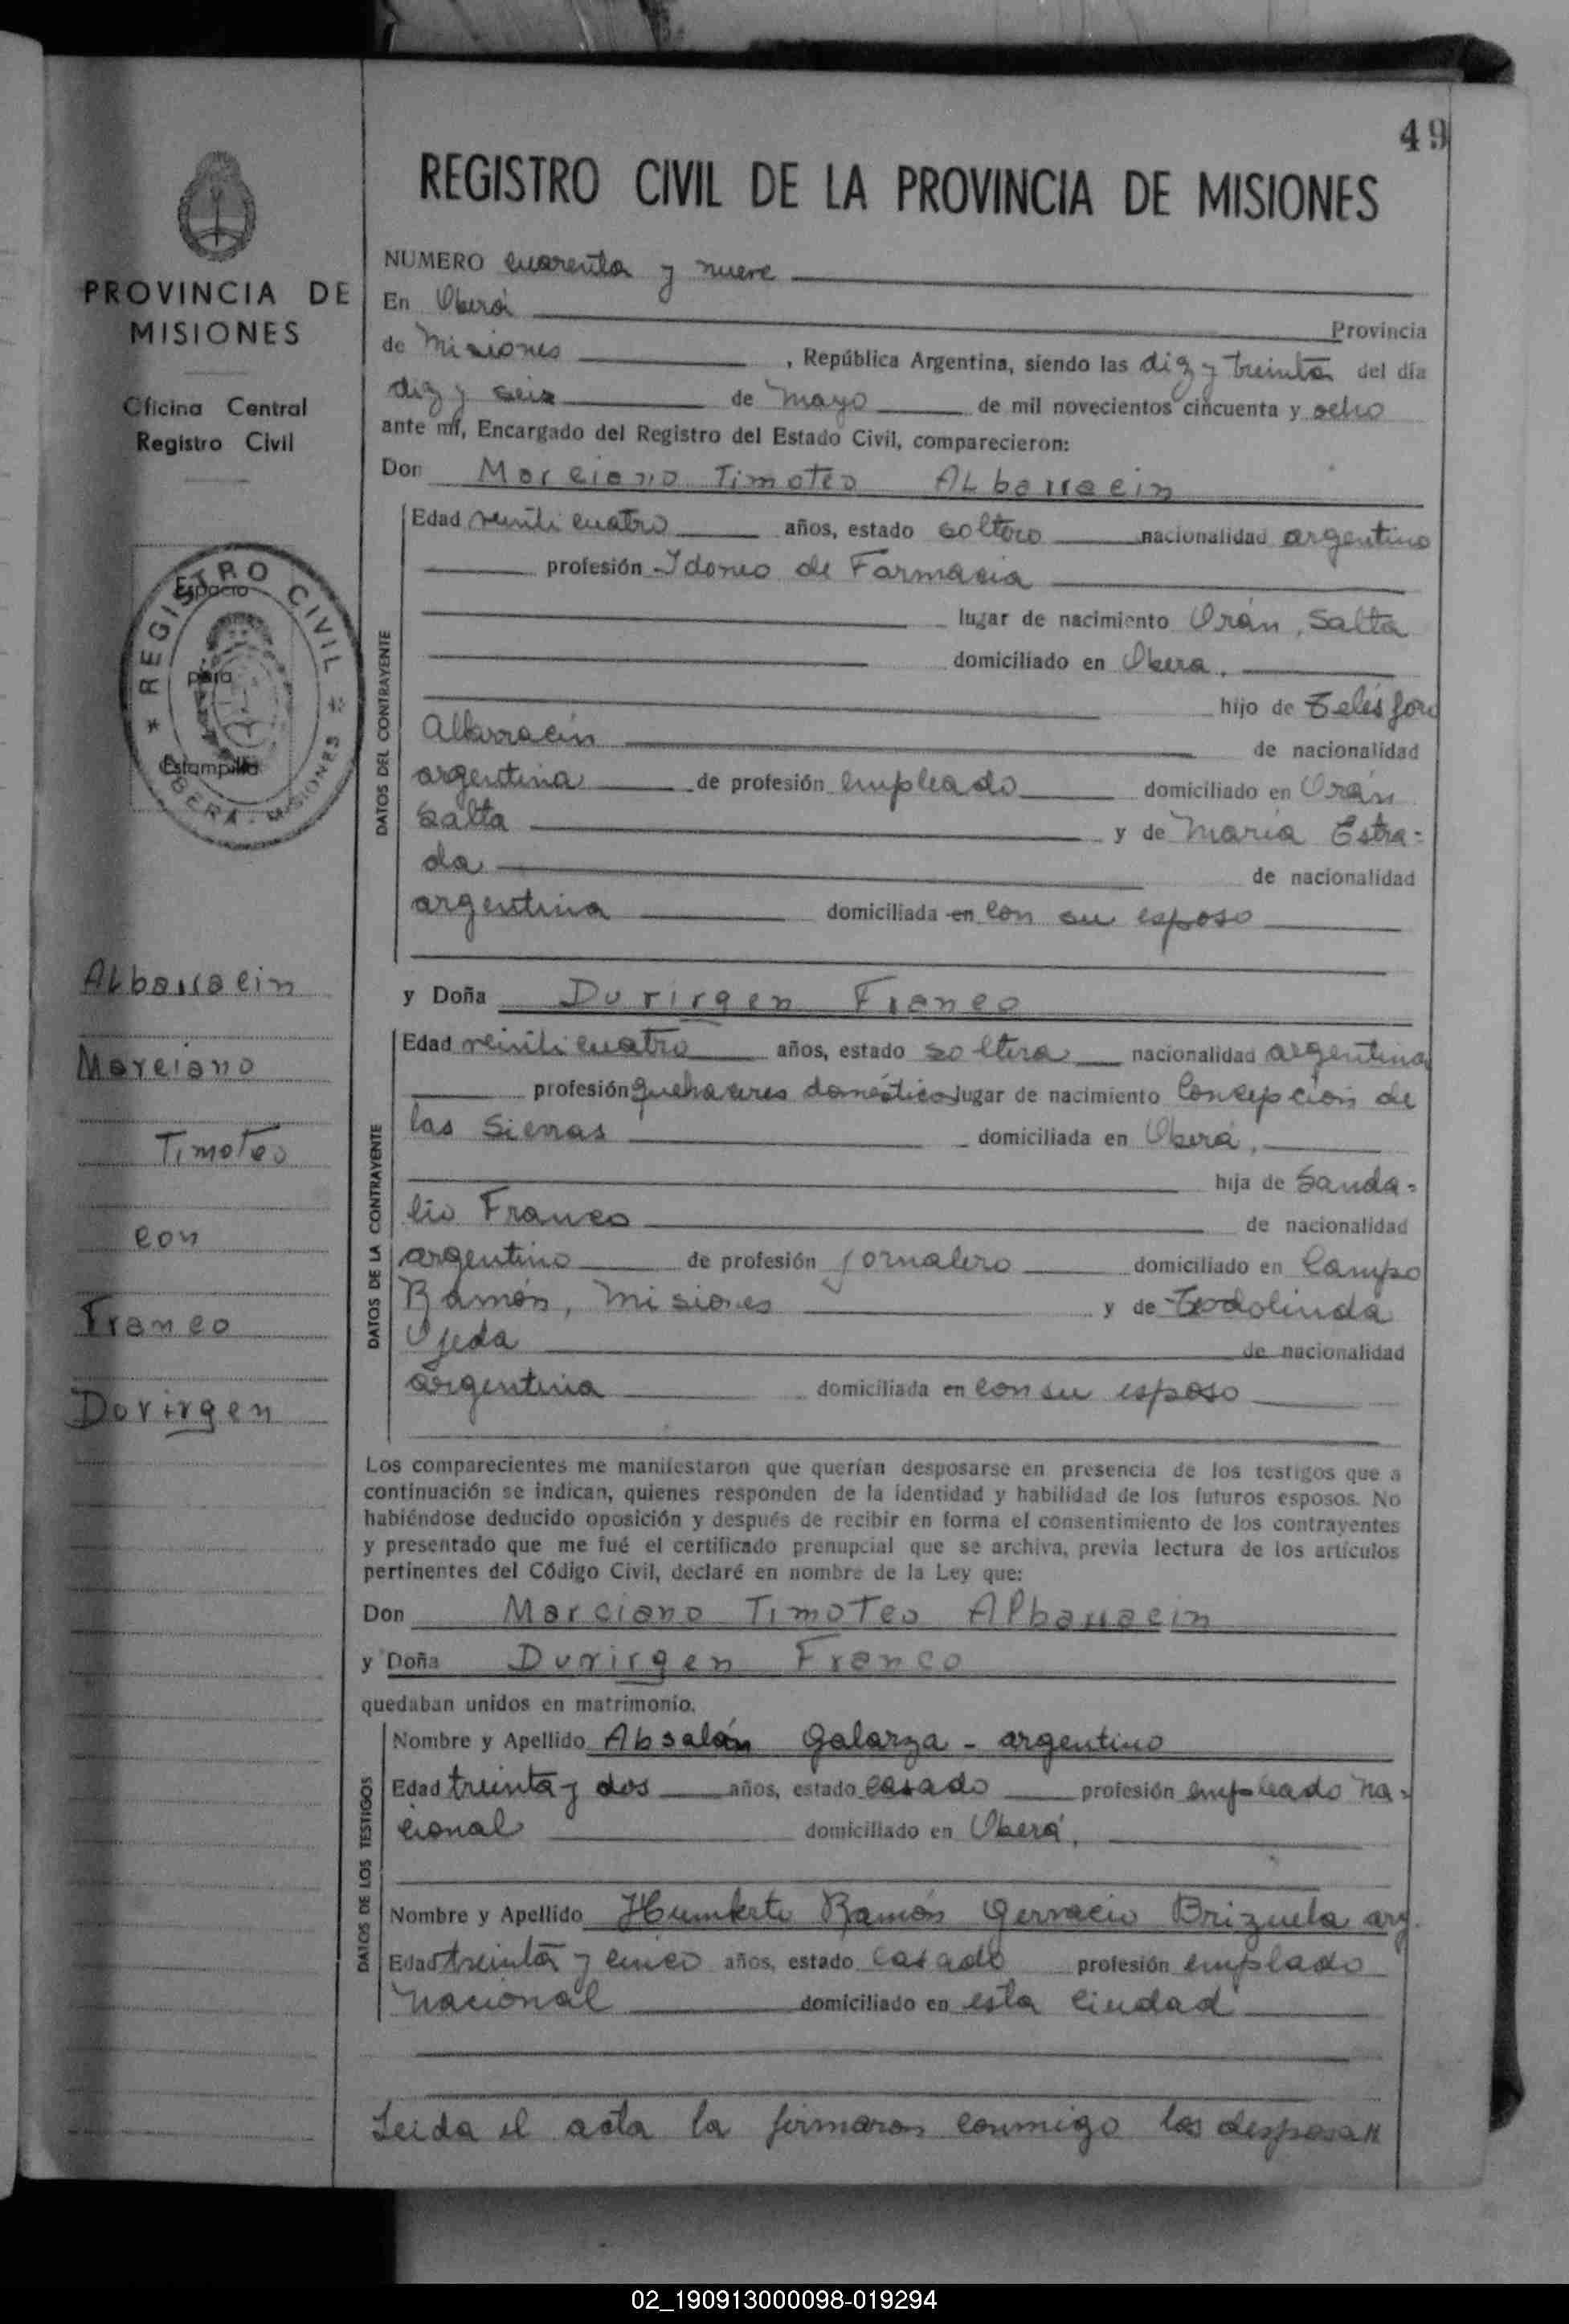 49
REGISTRO CIVIL DE LA PROVINCIA DE MISIONES
PROVINCIA DE
MISIONES
Oficina Central
Registro Civil
REGISTRO CIVIL
OBERA - MISIONES
Espacio
para
Estampilla
Albarracin
Marciano
Timoteo
con
Franco
Durirgen
NUMERO cuarenta y nueve
En Oberá Provincia
de Misiones , República Argentina, siendo las diez y treinta del día
diez y seis de Mayo de mil novecientos cincuenta y ocho
ante mí, Encargado del Registro del Estado Civil, comparecieron:
Don Marciano Timoteo Albarracin
DATOS DEL CONTRAYENTE
Edad veinticuatro años, estado soltero nacionalidad argentino
profesión Idoneo de Farmacia
lugar de nacimiento Orán, Salta
domiciliado en Oberá,
hijo de Telésforo
Albarracín de nacionalidad
argentina de profesión empleado domiciliado en Orán
Salta y de María Estra=
da de nacionalidad
argentina domiciliada en con su esposo
y Doña Durirgen Franco
DATOS DE LA CONTRAYENTE
Edad veinticuatro años, estado soltera nacionalidad argentina
profesión quehaceres domésticos lugar de nacimiento Concepción de
las Sierras domiciliada en Oberá,
hija de Sanda=
lio Franco de nacionalidad
argentino de profesión jornalero domiciliado en Campo
Ramón, Misiones y de Teodolinda
Ojeda de nacionalidad
argentina domiciliada en con su esposo
Los comparecientes me manifestaron que querían desposarse en presencia de los testigos que a
continuación se indican, quienes responden de la identidad y habilidad de los futuros esposos. No
habiéndose deducido oposición y después de recibir en forma el consentimiento de los contrayentes
y presentado que me fué el certificado prenupcial que se archiva, previa lectura de los artículos
pertinentes del Código Civil, declaré en nombre de la Ley que:
Don Marciano Timoteo Albarracin
y Doña Durirgen Franco
quedaban unidos en matrimonio.
DATOS DE LOS TESTIGOS
Nombre y Apellido Absalón Galarza - argentino
Edad treinta y dos años, estado casado profesión empleado na=
cional domiciliado en Oberá,
Nombre y Apellido Humberto Ramón Gervacio Brizuela arg.
Edad treinta y cinco años, estado casado profesión emplado
nacional domiciliado en esta ciudad
Leida el acta la firmaron conmigo los desposa"
02_190913000098-019294